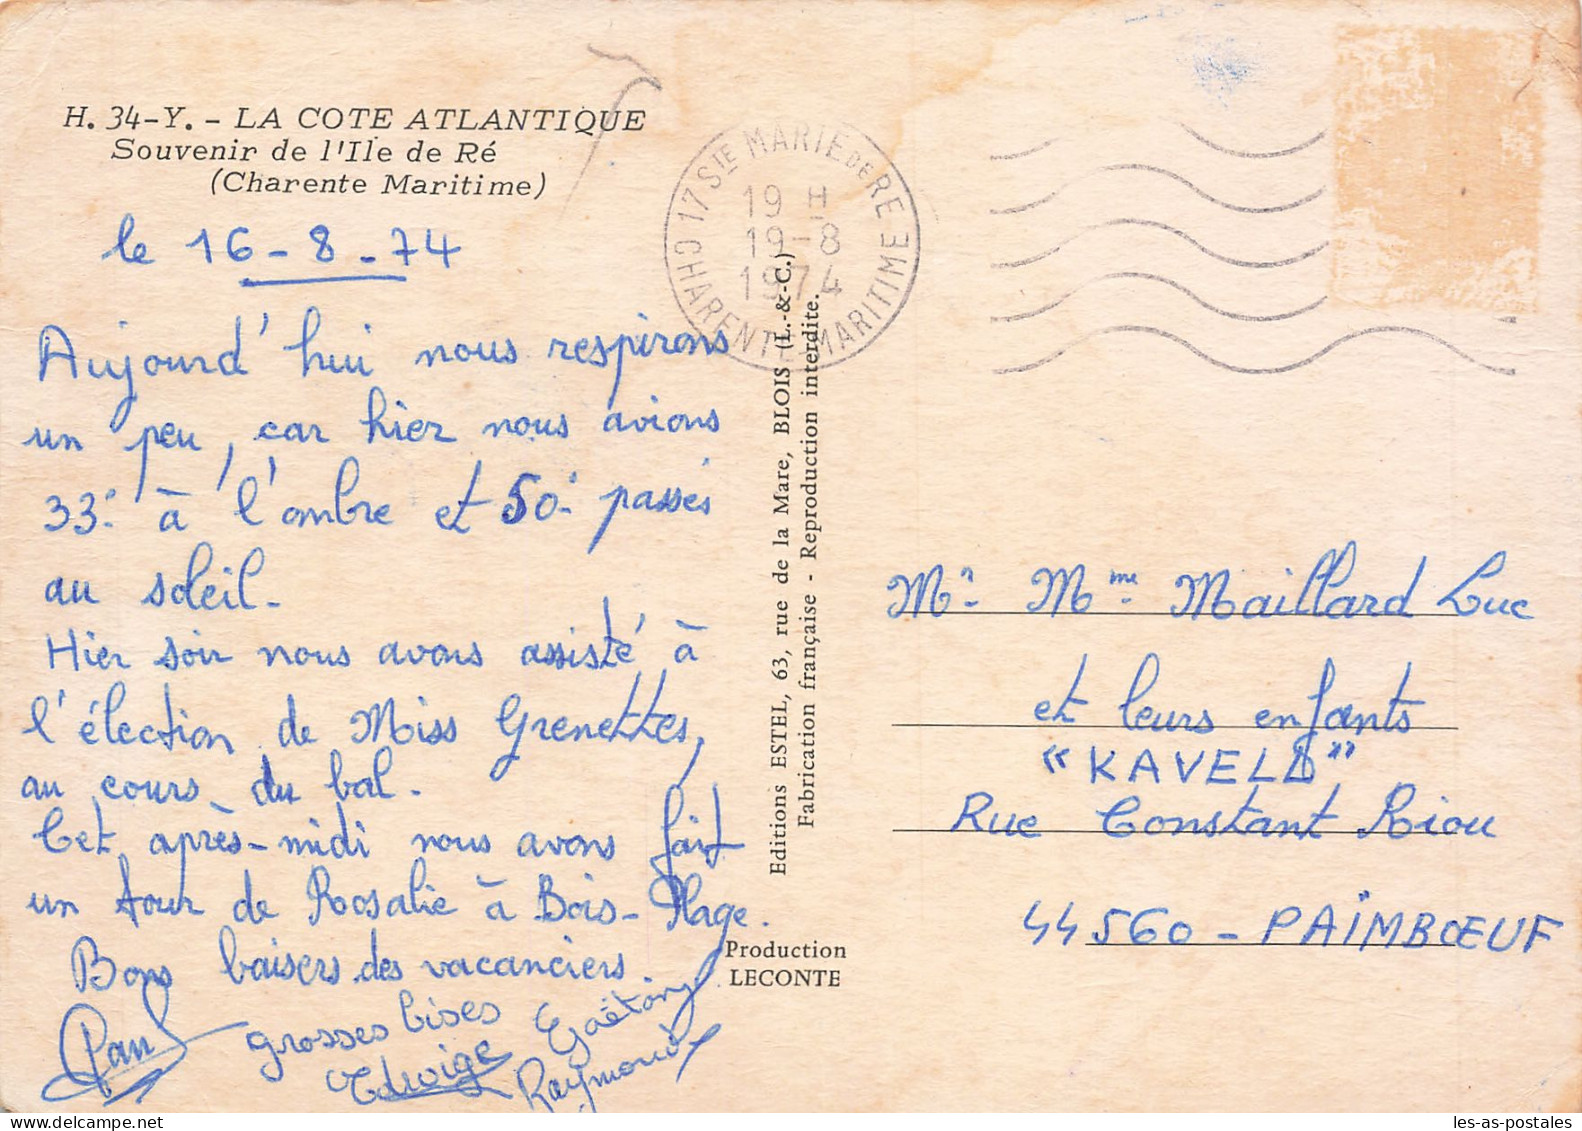 H. 34-Y. - LA COTE ATLANTIQUE
Souvenir de l'Ile de Ré
(Charente Maritime)
le 16-8-74
Aujourd'hui nous respirons
un peu, car hier nous avions
33° à l'ombre et 50° passés
au soleil.
Hier soir nous avons assisté à
l'élection de Miss Grenettes,
au cours du bal.
Cet après-midi nous avons fait
un tour de Rosalie à Bois-Plage.
Bons baisers des vacanciers.
Paul
grosses bises
Edwige
Gaëtan
Raymond
17 STE MARIE DE RE
CHARENTE MARITIME
19 H
19-8
1974
Editions ESTEL, 63, rue de la Mare, BLOIS (L.-&-C.)
Fabrication française - Reproduction interdite.
Production
LECONTE
Mr Mme Maillard Luc
et leurs enfants
"KAVELD"
Rue Constant Riou
44560 - PAÏMBŒUF
les-as-postales